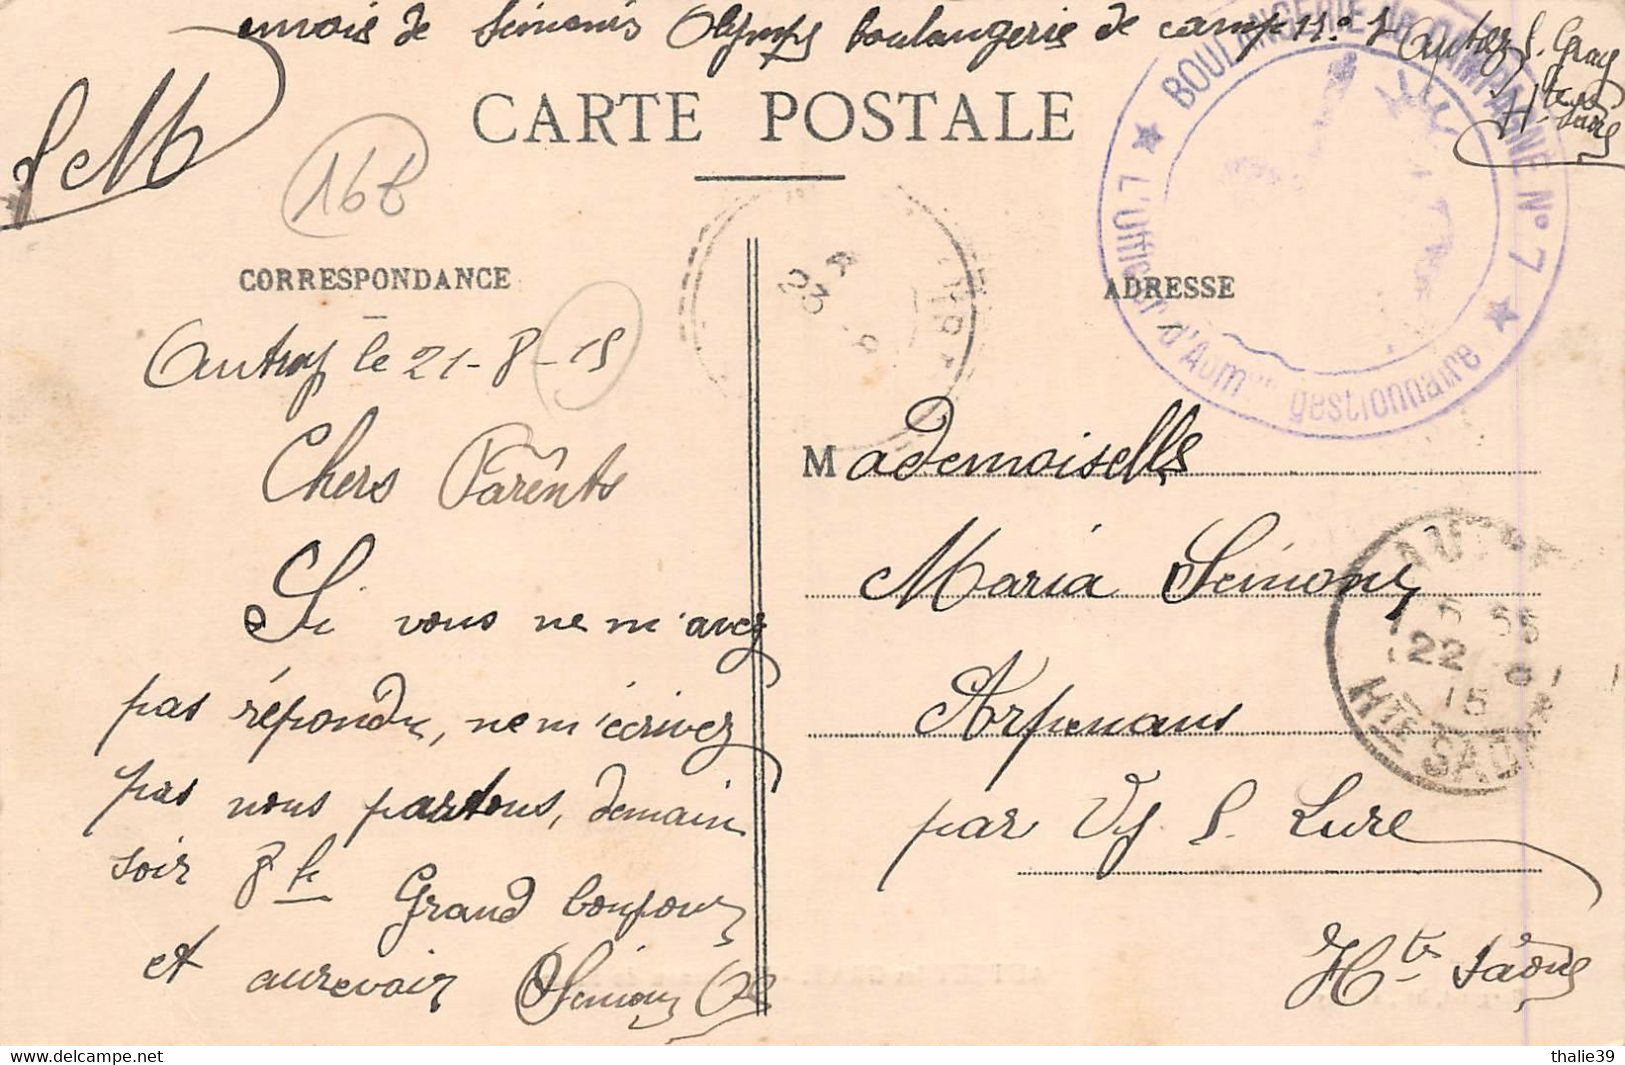 envois de Simonin Olympe boulangerie de camp n:o 7 Autrey s. Gray
Hte Saône
S M
CARTE POSTALE
16 b
BOULANGERIE DE CAMPAGNE N° 7
L'Officier d'Adm.on gestionnaire
CORRESPONDANCE
ADRESSE
23
Autrey le 21-8-15
Chers Parênts
Si vous ne m'avez
pas répondu, ne m'écrivez
pas nous partons, demain
soir 8 h Grand bonjour
et aurevoir
Mademoiselle
Maria Simonin
Arpenans
par Vy s. Lure
Hte Saône
22
15
HTE SAONE
thalie39